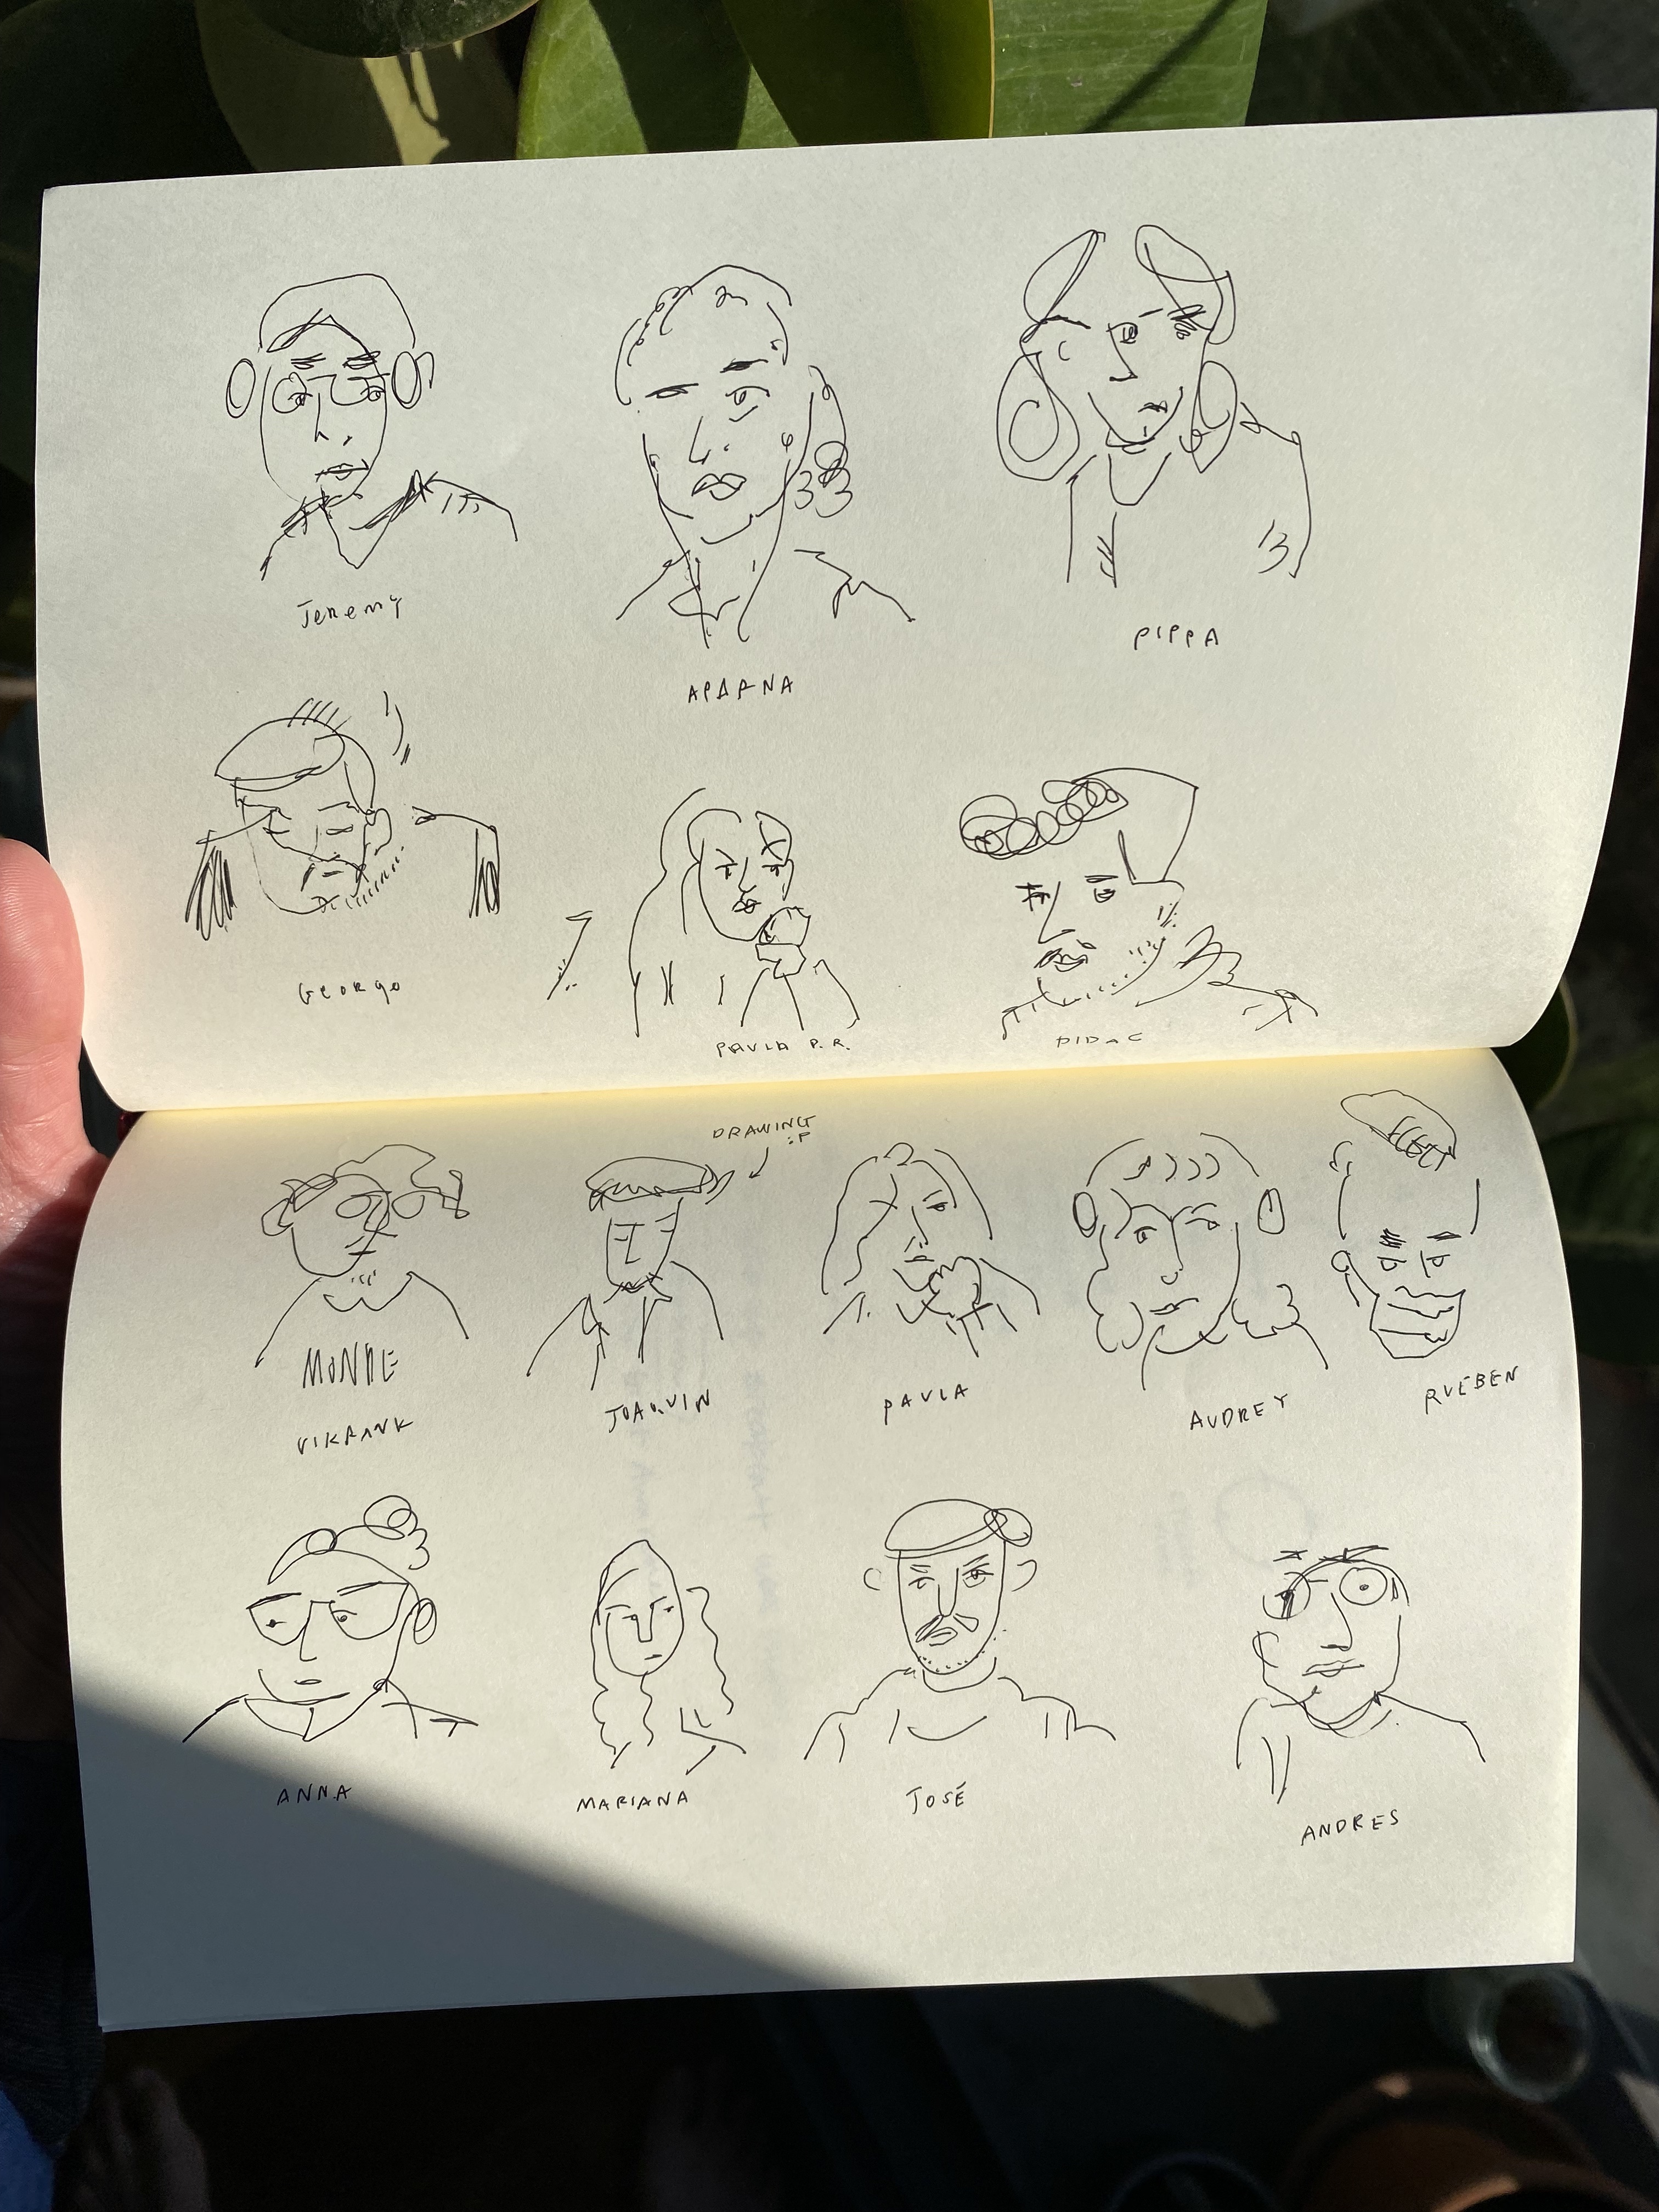 Jeremy
APARNA
PIPPA
George
PAULA P.R.
DIDAC
DRAWING
:P
VIKRANK
JOAQUIN
PAULA
AUDREY
RUEBEN
ANNA
MARIANA
JOSÉ
ANDRES